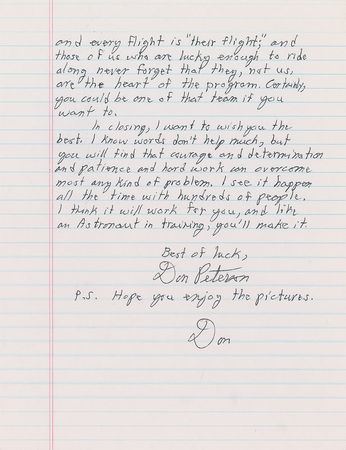 and every flight is "their flight," and
those of us who are lucky enough to ride
along never forget that they, not us,
are "the heart" of the program. Certainly,
you could be one of that team if you
want to.
In closing, I want to wish you the
best. I know words don't help much, but
you will find that courage and determination
and patience and hard work can overcome
most any kind of problem. I see it happen
all the time with hundreds of people.
I think it will work for you, and like
an Astronaut in training, you'll make it.
Best of luck,
Don Peterson
P.S. Hope you enjoy the pictures.
Don